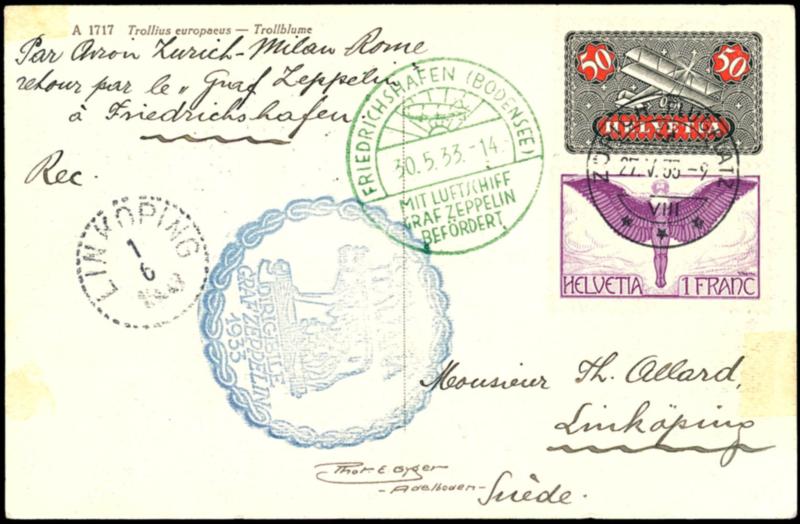 A 1717 Trollius europaeus — Trollblume
Par Avion Zurich-Milan Rome
retour par le „Graf Zeppelin"
à Friedrichshafen
Rec.
FRIEDRICHSHAFEN (BODENSEE)
30.5.33.-14
MIT LUFTSCHIFF
GRAF ZEPPELIN
BEFÖRDERT
50 50
HELVETIA
27.V.33-9
VIII
HELVETIA 1 FRANC
LINKÖPING
1
6
DIRIGIBILE
GRAF ZEPPELIN
1933
Monsieur Th. Allard,
Linköping
Suède.
Phot E Gyger
- Adelboden -